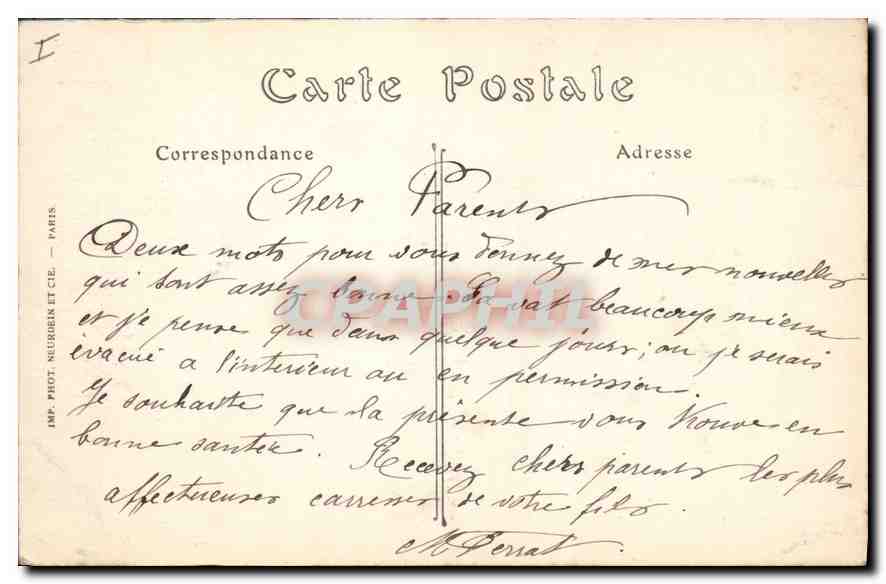 I
Carte Postale
Correspondance
Adresse
Chers Parents
Deux mots pour vous donnez de mes nouvelles
qui sont assez bonne. Ça vat beaucoup mieux
et je pense que dans quelque jours; ou je serais
évacué a l'interieur ou en permission.
Je souhaitte que la présente vous trouve en
bonne santée. Recevez chers parents les plus
affectueuses carresses de votre fils.
M Perrat.
IMP. PHOT. NEURDEIN ET CIE. — PARIS.
CPAPHIL